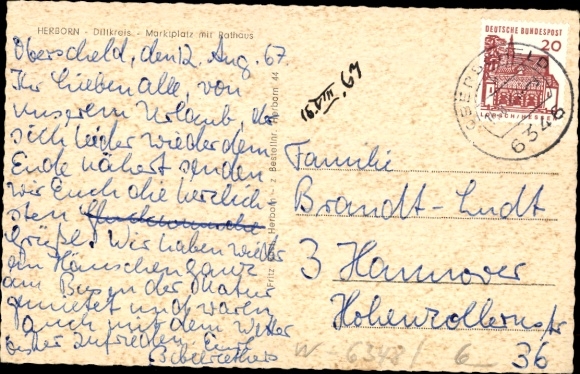 HERBORN - Dillkreis - Marktplatz mit Rathaus
Oberscheld, den 12. Aug. 67.
Ihr Lieben alle, von
unserem Urlaub, der
sich leider wieder dem
Ende nähert senden
wir Euch die herzlich
sten
Grüße. Wir haben wieder
ein Häuschen ganz
am Busen der Natur
gemietet und waren
auch mit dem Wetter
bisher zufrieden. Eure
16. VIII. 67
Herborn - z Bestellnr. Herborn 44
DEUTSCHE BUNDESPOST
20
LORSCH/HESSEN
6349
Familie
Brandt-Ludt
3 Hannover
Hohenzollernstr
36
W-6348/ 6